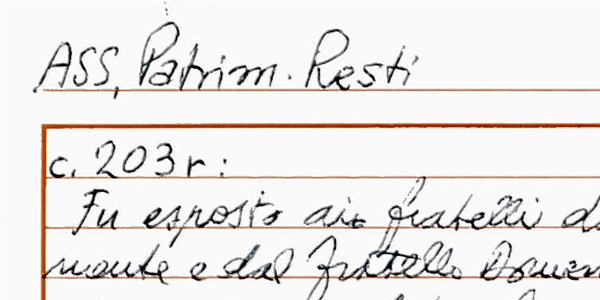 ASS, Patrim. Resti
c. 203r:
Fu esposto ai fratelli d
monte e dal fratello Domen